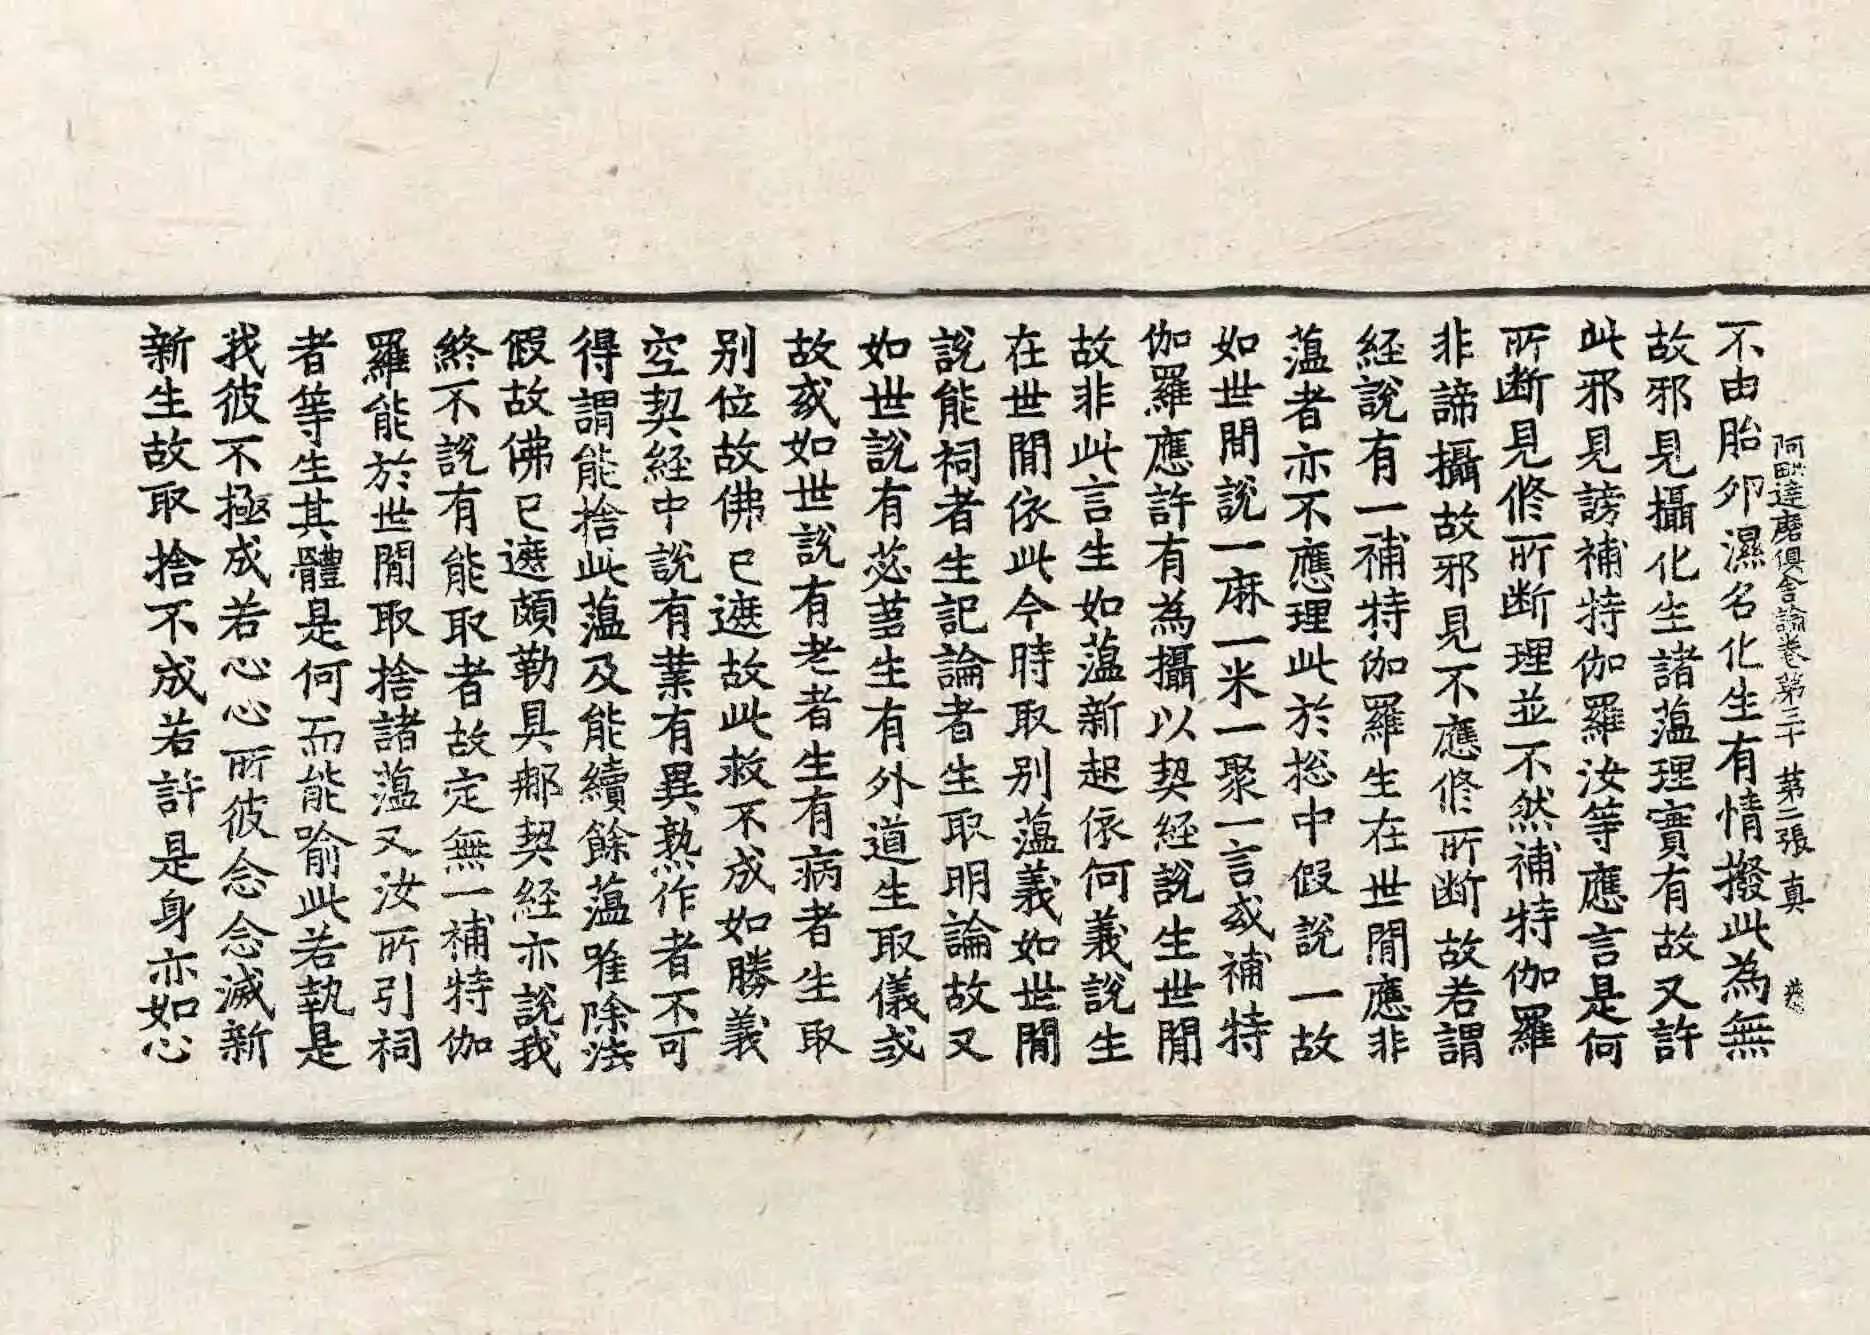 阿毗達磨俱舍論卷第三十 第二張 真
不由胎卵濕名化生有情撥此為無
故邪見攝化生諸薀理實有故又許
此邪見謗補特伽羅汝等應言是何
所断見修所断理並不然補特伽羅
非諦攝故邪見不應修所断故若謂
経說有一補特伽羅生在世間應非
薀者亦不應理此於捴中假說一故
如世間說一麻一米一聚一言或補特
伽羅應許有為攝以契経說生世間
故非此言生如薀新起依何義說生
在世間依此今時取別薀義如世間
說能祠者生記論者生取明論故又
如世說有苾蒭生有外道生取儀式
故或如世說有老者生有病者生取
別位故佛已遮故此救不成如勝義
空契経中說有業有異熟作者不可
得謂能捨此薀及能續餘薀唯除法
假故佛已遮頗勒具那契経亦說我
終不說有能取者故定無一補特伽
羅能於世間取捨諸薀又汝所引祠
者等生其體是何而能喻此若執是
我彼不極成若心心所彼念念滅新
新生故取捨不成若許是身亦如心